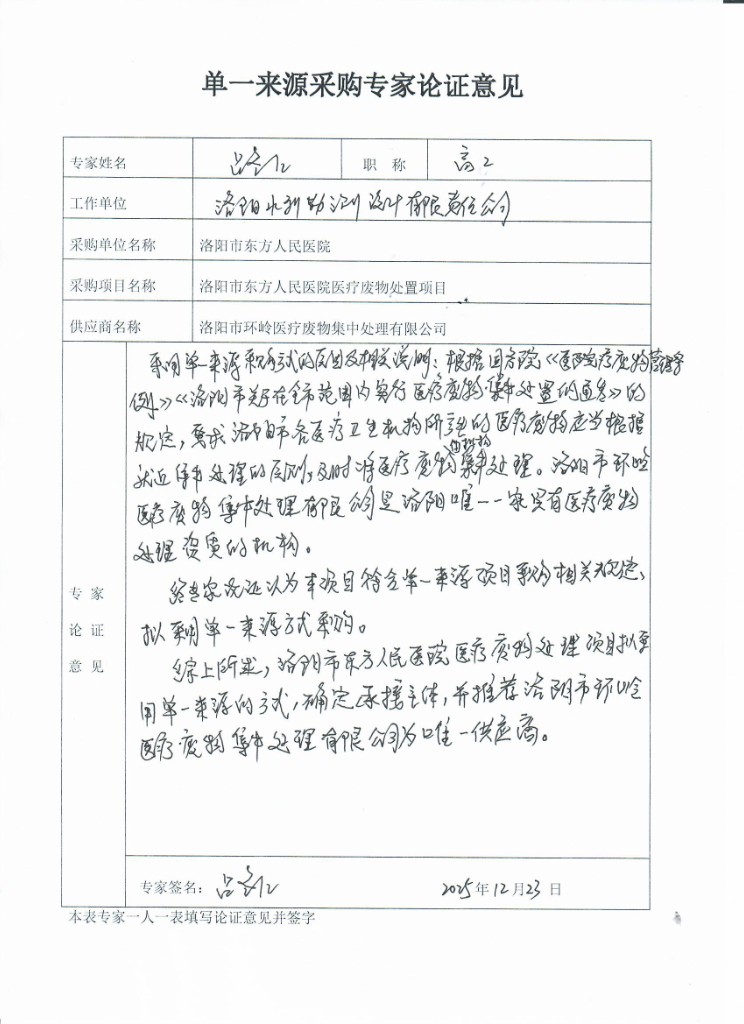 单一来源采购专家论证意见
专家姓名 吕 职 称 高工
工作单位 洛阳水利勘测设计有限责任公司
采购单位名称 洛阳市东方人民医院
采购项目名称 洛阳市东方人民医院医疗废物处置项目
供应商名称 洛阳市环岭医疗废物集中处理有限公司
专 家
论 证
意 见
采用单一来源采购方式的原因及相关说明：根据国务院《医疗废物管理条
例》《洛阳市关于在全市范围内实行医疗废物集中处置的通告》的
规定，要求洛阳市各医疗卫生机构所产生的医疗废物应当根据
就近集中处理的原则，及时将医疗废物集中处理。洛阳市环岭
医疗废物集中处理有限公司是洛阳唯一一家具有医疗废物
处理资质的机构。
经专家论证认为本项目符合单一来源项目采购相关规定，
拟采用单一来源方式采购。
综上所述，洛阳市东方人民医院医疗废物处理项目拟采
用单一来源的方式，确定承接主体，并推荐洛阳市环岭
医疗废物集中处理有限公司为唯一供应商。
专家签名： 吕 2025年12月23日
本表专家一人一表填写论证意见并签字